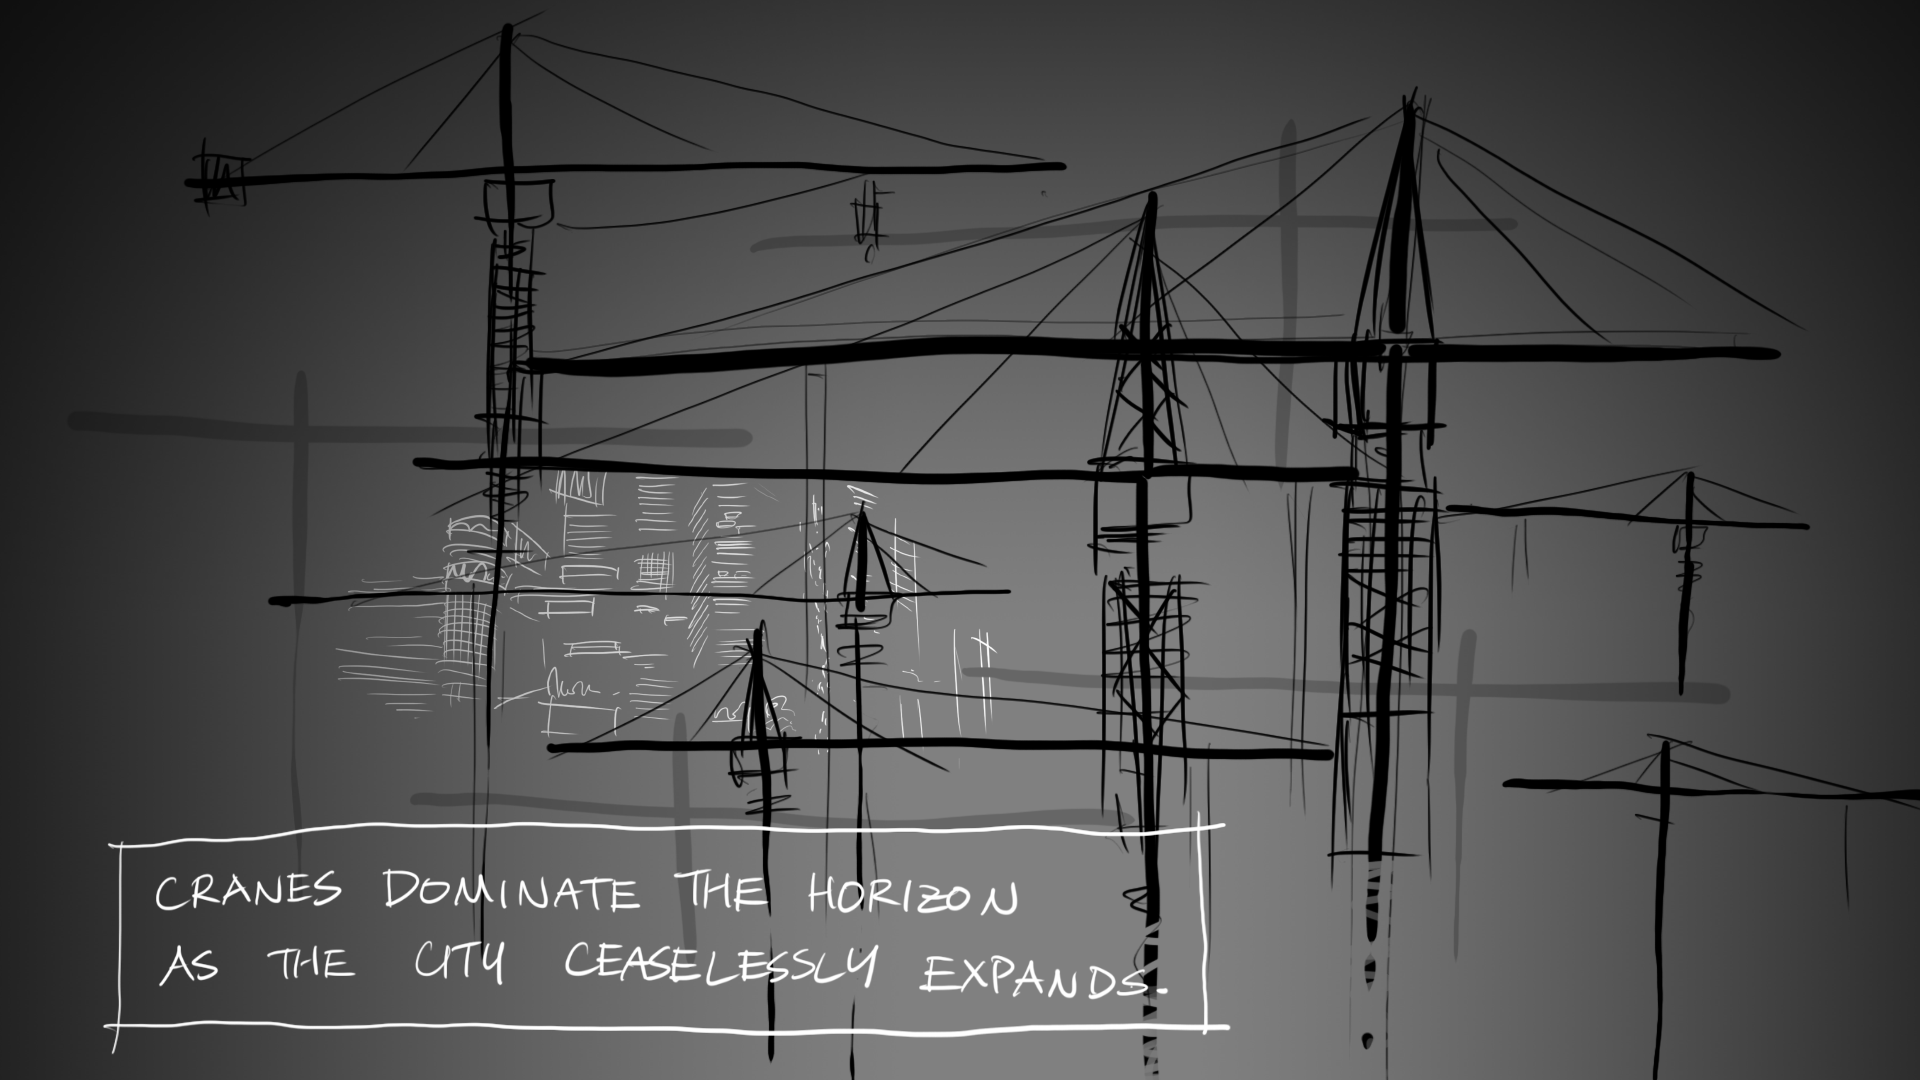 CRANES DOMINATE THE HORIZON
AS THE CITY CEASELESSLY EXPANDS.